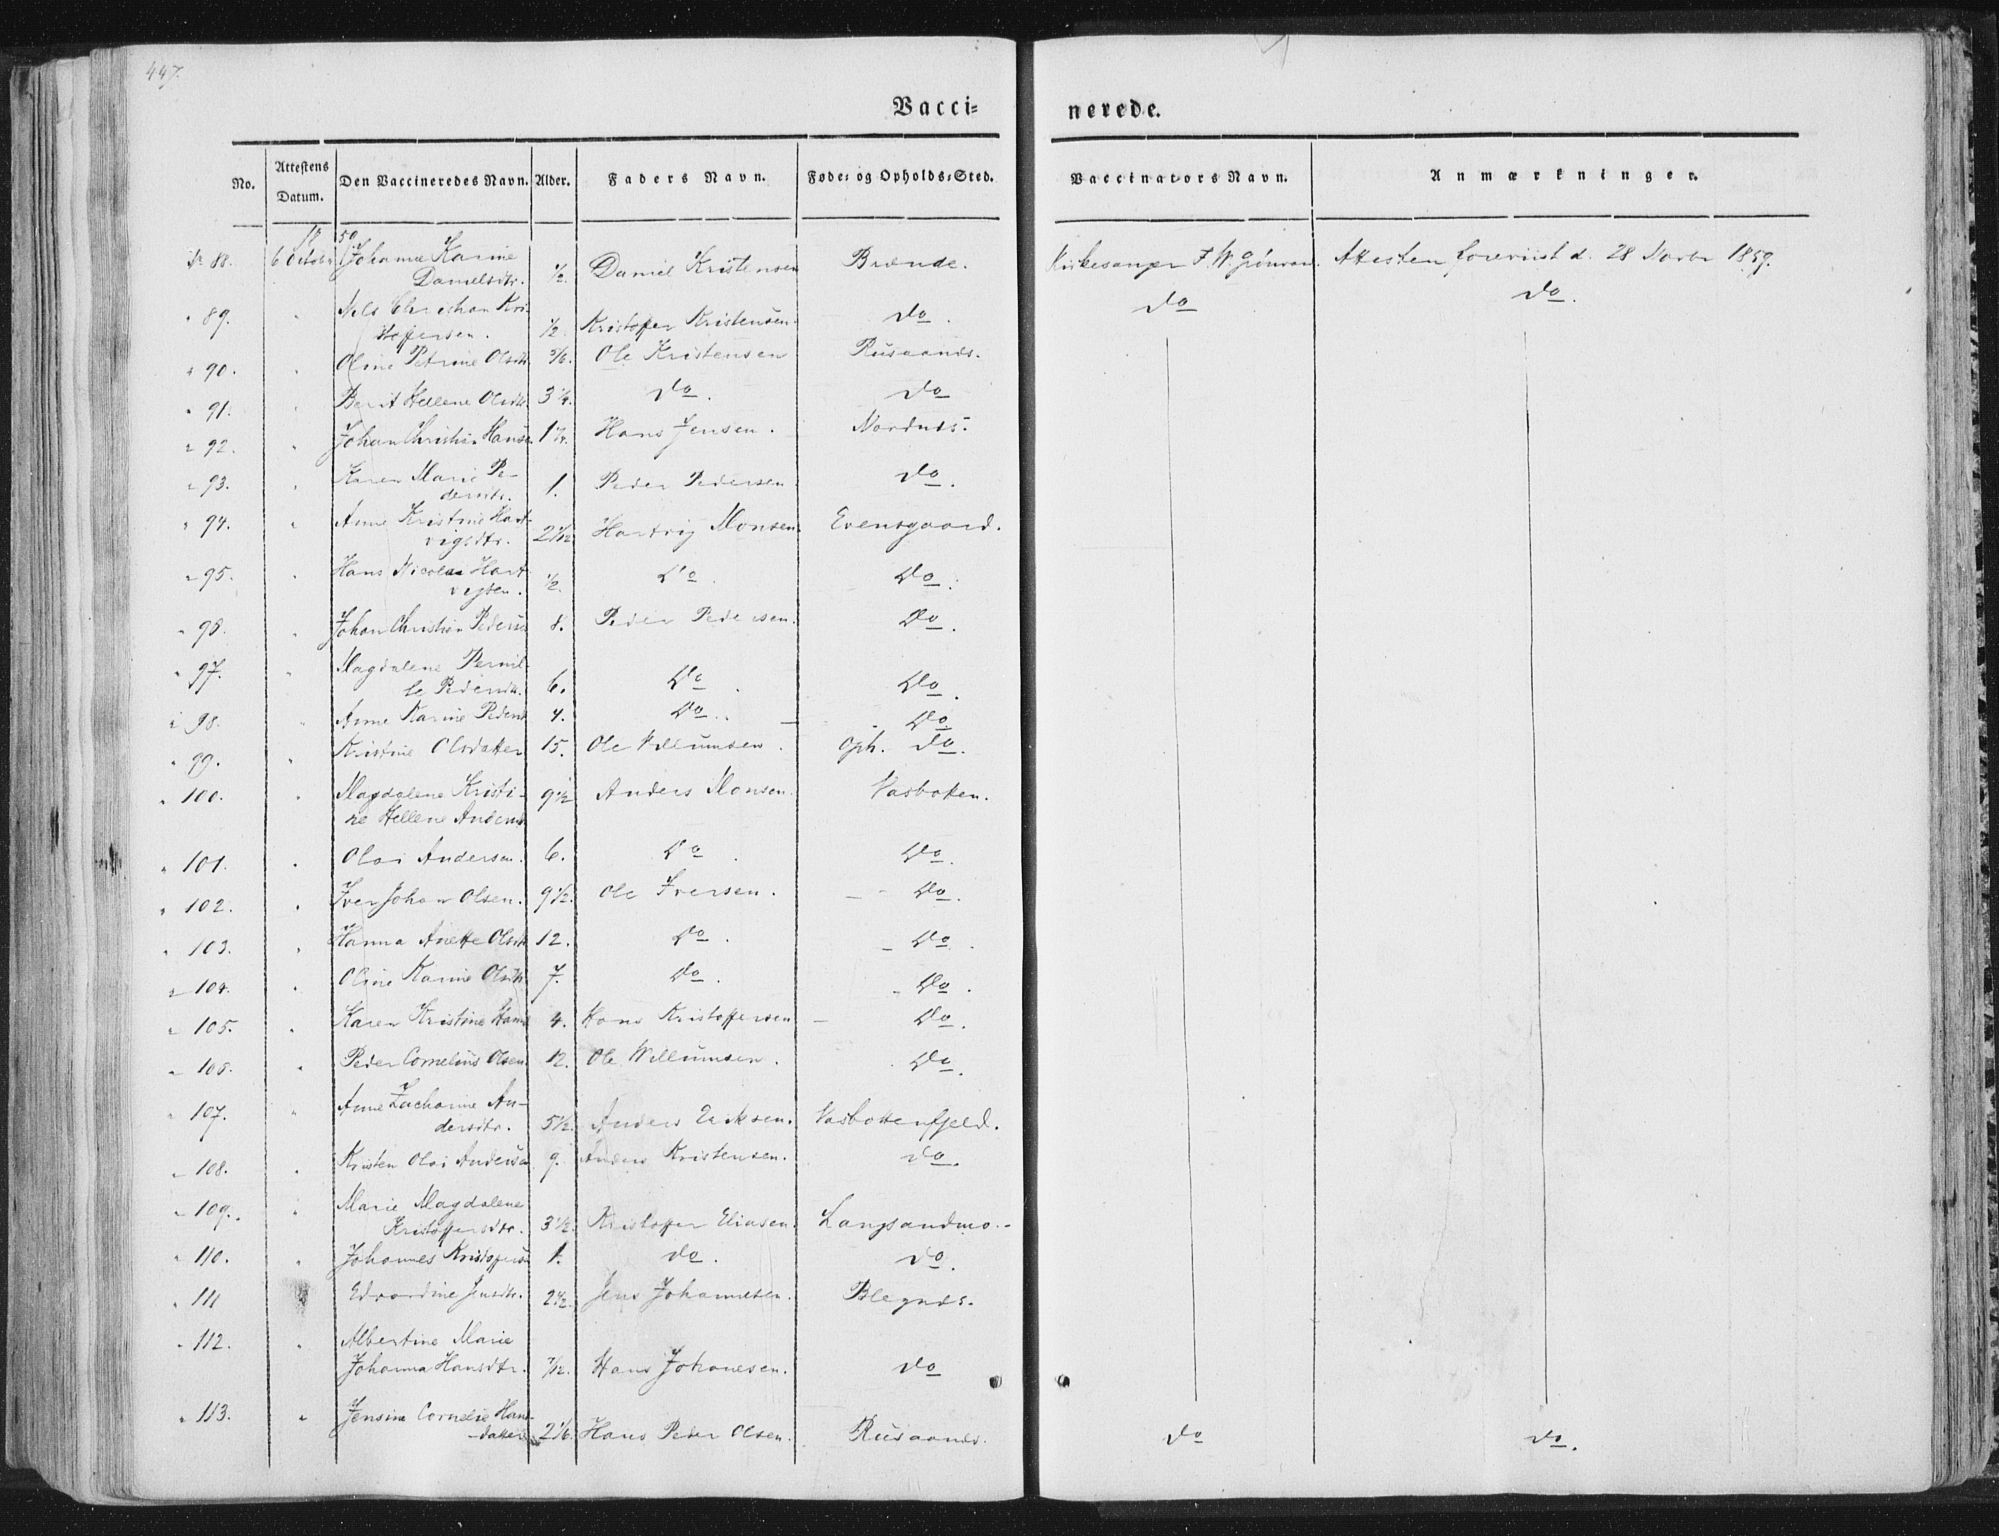 447.
Vacci= nerede.
No. Attestens Datum. Den Vaccineredes Navn. Alder. Faders Navn. Føde= og Opholds=Sted. Vaccinators Navn. Anmærkninger.
18 59
No 88. 6 Octobr Johanna Karine Danielsdtr. 1/2. Daniel Kristensen Brænde. Kirkesanger F. W. Attesten foreviist d. 28 Novbr 1859.
" 89. " Nils Christian Kristoffersen. 1/2. Kristoffer Kristensen. do. do do.
" 90. " Oline Petrine Olsdtr. 5/6. Ole Kristensen Rusaanes.
" 91. " Berit Hellene Olsdtr. 3 1/4. do. do
" 92. " Johan Christian Hansen Hans Jensen. Nordnes.
" 93. " Karen Marie Pedersdtr. 1. Peder Pedersen. do.
" 94. " Anne Kristine Hartvigsdtr. Hartvig Monsen. Evensgaard.
" 95. " Hans Nicolai Hartvigsen. 1/2. do. do.
" 96. " Johan Christian Pedersen 8. Peder Pedersen. do.
" 97. " Magdalene Pernille Pedersdtr. 6. do. do.
" 98. " Anne Karine Pedersdtr 4. do. do.
" 99. " Kristine Olsdatter 15. Ole Willumsen. Oph. do.
" 100. " Magdalene Kristine Hellene Andersdtr 9 1/2 Anders Monsen. Vasbotten.
" 101. " Oloi Andersen. 6. do. do.
" 102. " Iver Johan Olsen. 9 1/2. Ole Iversen. - do.
" 103. " Hanna Anette Olsdtr 12. do. - do.
" 104. " Oline Karine Olsdtr. 7. do. - do.
" 105. " Karen Kristine Hansd 4. Hans Kristoffersen - do.
" 106. " Peder Cornelius Olsen. 12. Ole Willumsen. do.
" 107. " Anne Zacharine Andersdtr. 5 1/2. Anders Eriksen. Vasbottenfjeld.
" 108. " Kristen Oloi Andersen 9. Anders Kristensen. do.
" 109. " Marie Magdalene Kristoffersdtr. 3 1/2. Kristoffer Eliasen. Langsandmo.
" 110. " Johannes Kristoffersen 1. do. do.
" 111 Edvardine Jensdtr. 2 1/2. Jens Johannesen. Blegnes.
" 112. " Albertine Marie Johanna Hansdtr. 7/12. Hans Johanesen. do
" 113. " Jensine Cornelie Hansdatter 2 1/6. Hans Peder Olsen. Rusaanes. do do.